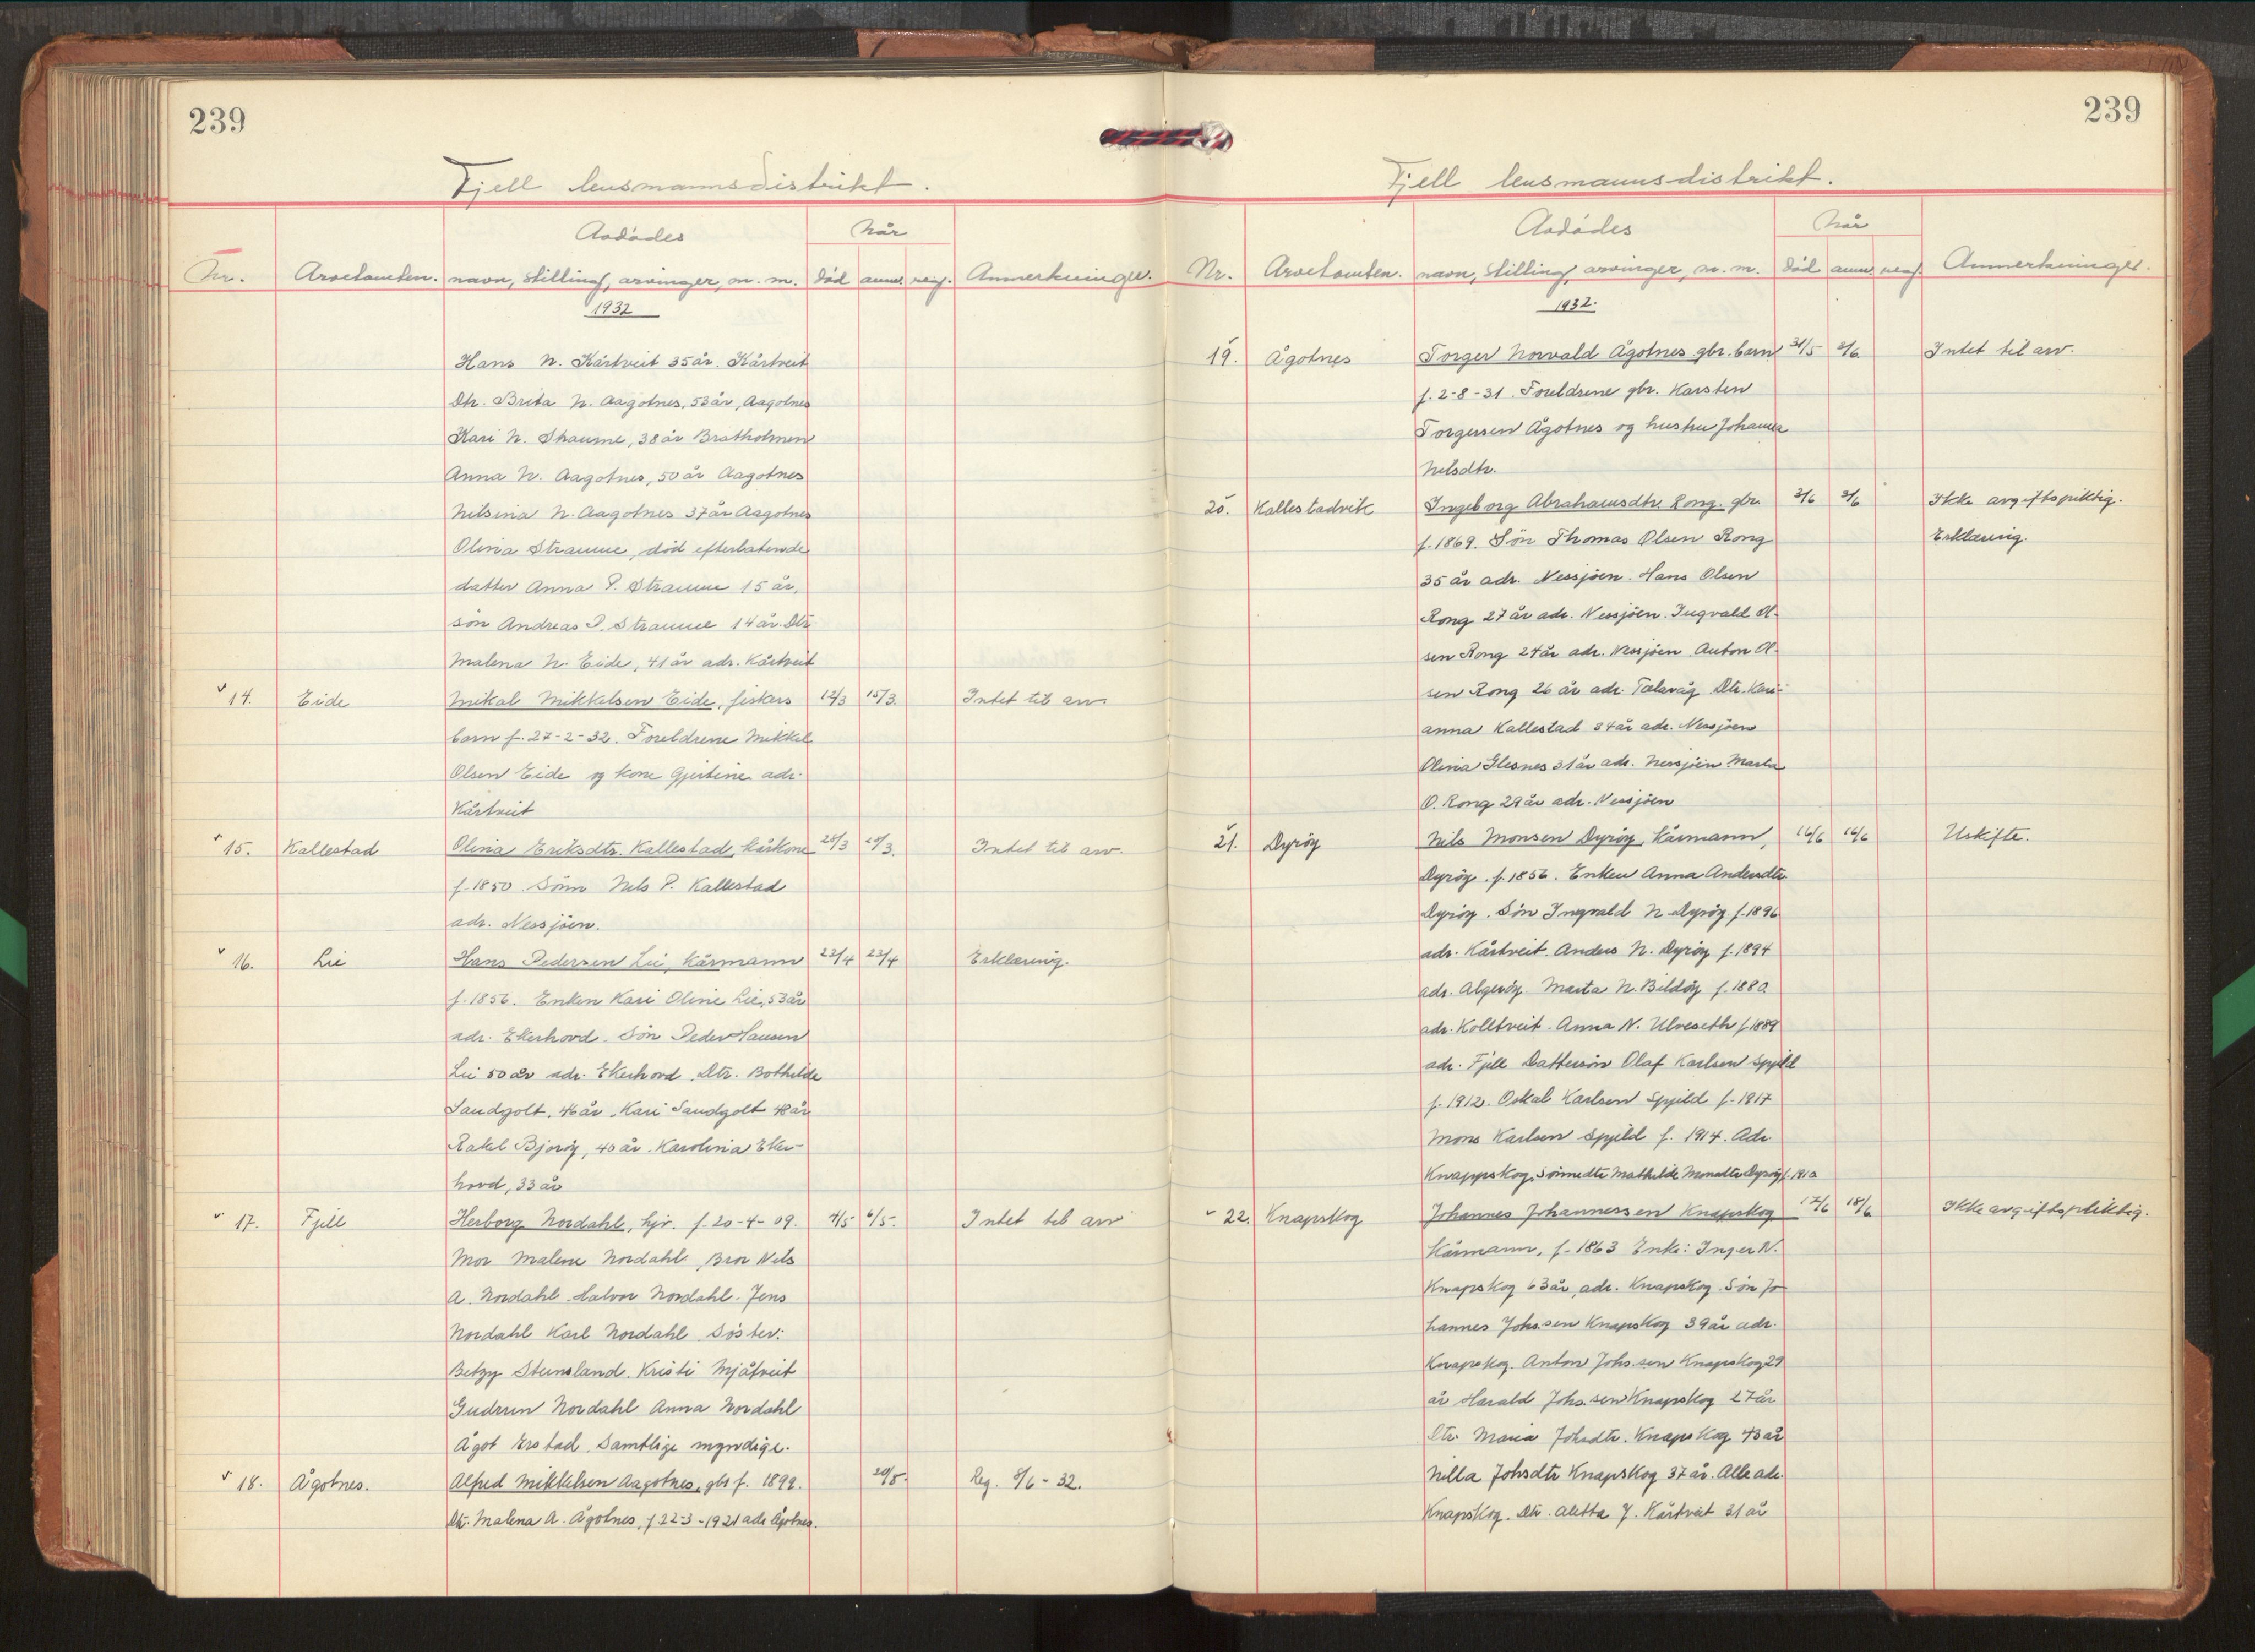 239
Fjell lensmannsdistrikt.
Avdødes
Når
Nr. Arvetomten. navn, stilling, arvinger, m. m. død anm. reg. Anmerkninger.
1932
Hans N. Kårtveit 35 år. Kårtveit
Dtr. Brita N. Aagotnes, 53 år, Aagotnes
Kari N. Skaume, 38 år Bratholmen
Anna N. Aagotnes, 50 år Aagotnes
Nilsina N. Aagotnes 37 år Aagotnes
Olina Straume, död efterlatende
datter Anna P. Straume 15 år,
sön Andreas P. Straume 14 år. Dtr.
Malena N. Eide, 41 år adr. Kårtveit
v 14. Eide Mikal Mikkelsen Eide, fiskers 12/3 15/3. Intet til arv.
barn f. 27-2-32. Foreldrene Mikkel
Olsen Eide og kone Gjertine adr.
Kårtveit
v 15. Kallestad Olina Eriksdtr. Kallestad, kårkone 25/3 29/3. Intet til arv.
f. 1850 Sönn Nils P. Kallestad
adr. Nessjöen.
v 16. Lie Hans Pedersen Lie, kårmann 23/4 23/4 Erklæring.
f. 1856. Enken Kari Oline Lie, 53 år
adr. Ekerhovd. Sön Peder Hansen
Lie 50 år adr. Ekerhovd. Dtr. Bothilde
Sandgolt, 46 år, Kari Sandgolt 48 år
Rakel Bjoröy, 40 år. Karolina Eker-
hovd, 33 år
v 17. Fjell Herborg Nordahl, hjv. f. 20-4-09. 4/5 6/5. Intet til arv
Mor Malene Nordahl, Bror Nils
A. Nordahl. Halvor Nordahl. Jens
Nordahl Karl Nordahl Söster:
Betzy Steinsland. Kristi Mjåtveit
Gudrun Nordahl Anna Nordahl
Ågot Erstad. Samtlige myndige.
v 18. Ågotnes. Alfred Mikkelsen Aagotnes, gbr f. 1899. 20/5. Reg. 8/6-32.
Dtr. Malena A. Ågotnes, f 22-3-1921 adr Ågotnes.
239
Fjell lensmannsdistrikt.
Avdødes
Når
Nr. Arvetomten. navn, stilling, arvinger, m. m. død anm. reg. Anmerkninger.
1932.
19. Ågotnes Torger Norvald Ågotnes gbr. barn 31/5 2/6 Intet til arv.
f. 2-8-31. Foreldrene gbr. Karsten
Torgersen Ågotnes og hustru Johanna
Nilsdtr.
20. Kallestadvik Ingeborg Abrahamsdtr. Rong. gbr. 2/6 3/6 Ikke avgiftspliktig.
f. 1869. Sön Thomas Olsen Rong Erklæring.
35 år adr. Nessjöen. Hans Olsen
Rong 27 år adr. Nessjöen. Ingvald Ol-
sen Rong 24 år adr. Nessjöen. Anton Ol-
sen Rong 26 år adr. Tælavåg. Dtr. Kari-
anna Kallestad 34 år adr. Nessjöen
Olina Glesnes 31 år adr. Nessjöen Marta
O. Rong 29 år adr. Nessjöen
21. Dyröy Nils Monsen Dyröy, kårmann, 16/6 16/6 Uskifte.
Dyröy. f. 1856. Enken Anna Andersdtr.
Dyröy. Sön Ingvald N. Dyröy f. 1896
adr. Kårtveit. Anders N. Dyröy f. 1894
adr. Algeröy. Marta N. Bildöy f. 1880
adr. Kolltveit. Anna N. Ulveseth f. 1889
adr. Fjell Dattersön Olaf Karlsen Spjeld
f. 1912. Oskal Karlsen Spjeld f. 1917
Mons Karlsen Spjeld f. 1914. Adr.
Knappskog. Sönnedtr Mathilde Monsdtr Dyröy f. 1910
v 22. Knapskog Johannes Johannessen Knapskog 17/6 18/6 Ikke avgiftspliktig.
Kårmann, f. 1863 Enke: Inger N.
Knapskog 63 år, adr. Knapskog. Sön Jo-
hannes Johs.sen Knapskog 39 år adr.
Knapskog. Anton Johs.sen Knapskog 29
år Harald Johs.sen Knapskog 27 år
Dtr. Maria Johsdtr. Knapskog 43 år
Nilla Johsdtr Knapskog 37 år. Alle adr.
Knapskog. Dtr. Alitta J. Kårtveit 31 år